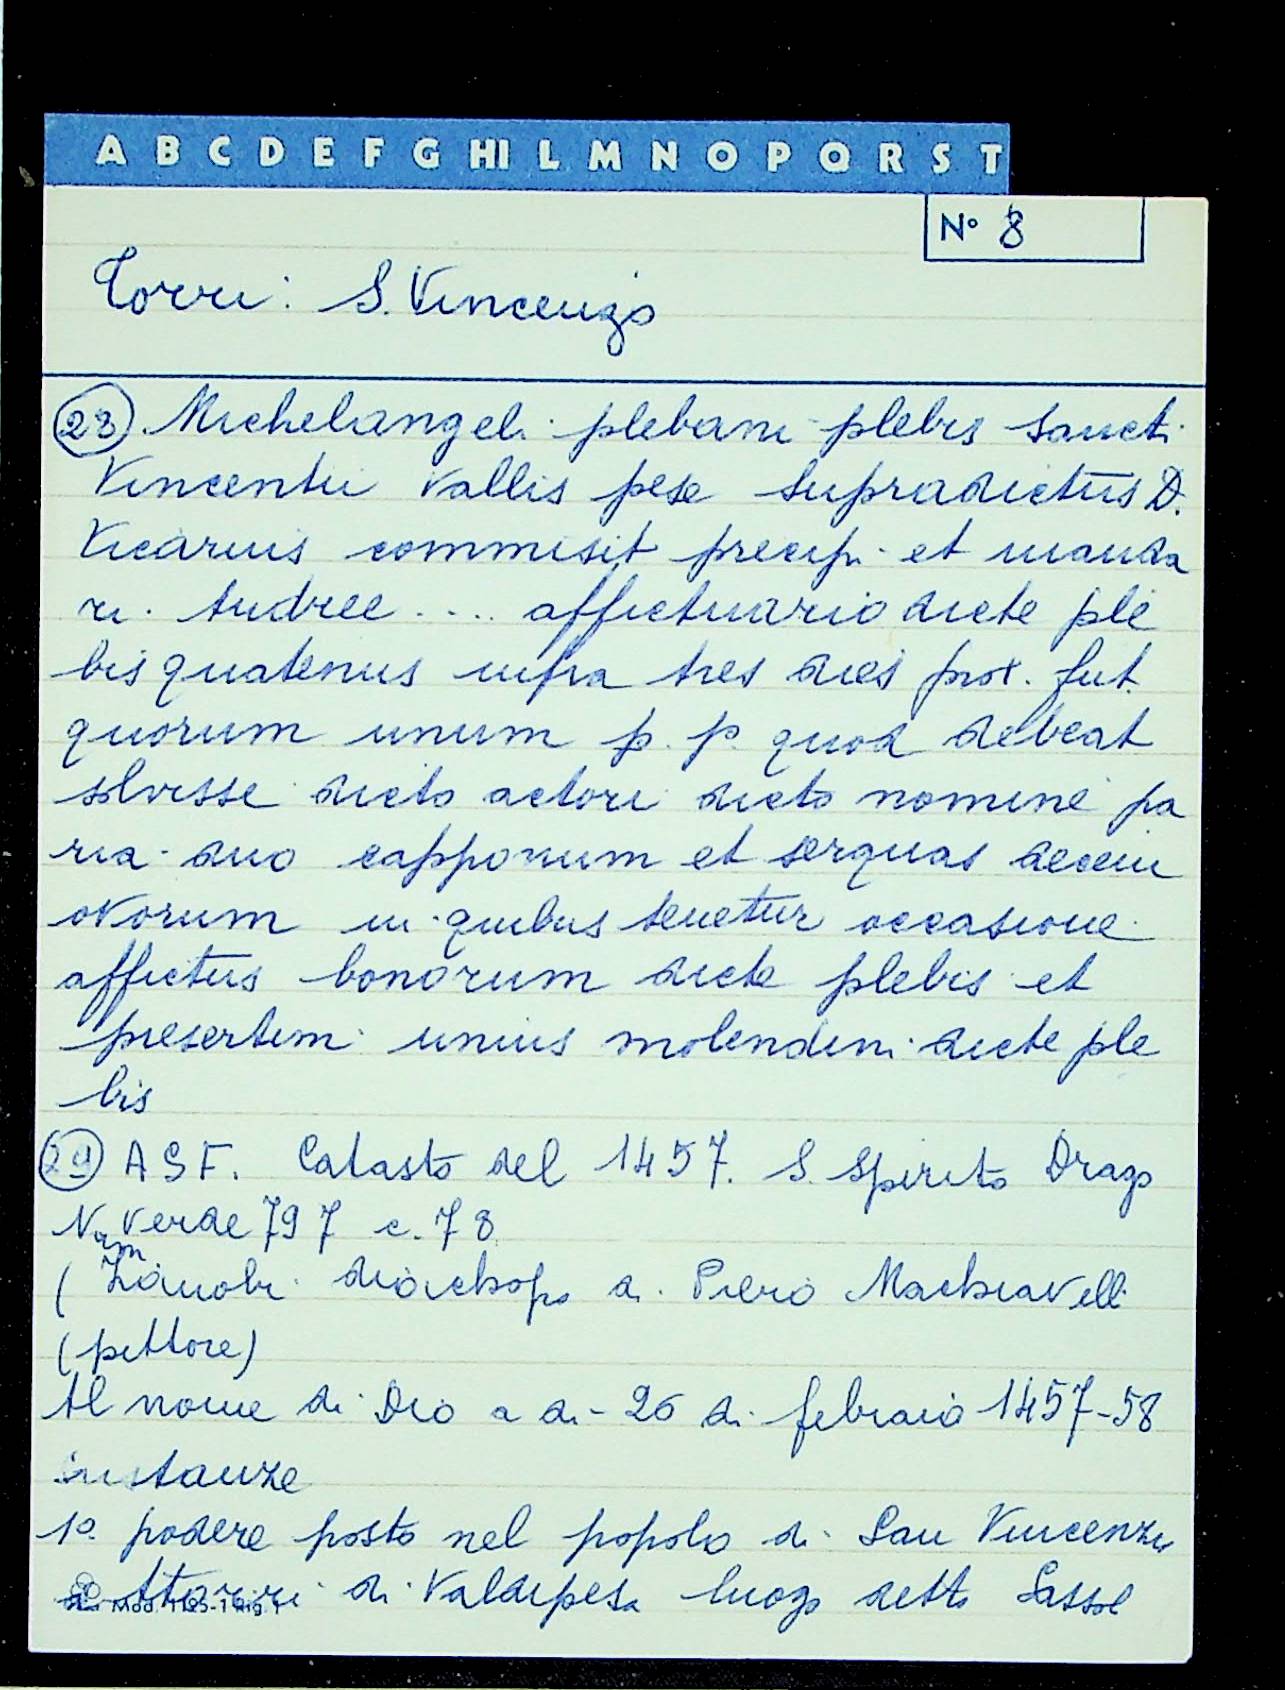 A B C D E F G HI L M N O P Q R S T
N° 8
Torri: S. Vincenzo
(28) Michelangeli plebani plebis Sancti
Vincentii Vallis pese supradictus D.
Vicarius commisit precipi et manda
ri Andree .... affictuario dicte ple
bis quatenus infra tres dies prox. fut.
quorum unum p. p. quod debeat
solvisse dicto actori dicto nomine pa
ria duo capponum et serquas decem
ovorum in quibus tenetur occasione
affictus bonorum dicte plebis et
presertim unius molendini dicte ple
bis
(29) A S F. Catasto del 1457. S. Spirito Drago
Num verde 797 c. 78
( Zanobi di Piero Machiavelli
(pittore)
Al nome di Dio a di 26 di febraio 1457-58
sustanze
1° podere posto nel popolo di San Vincenzo
a Ttorri di Valdipesa luogo detto Sassol
Mod. 1195-1 Rig. 1